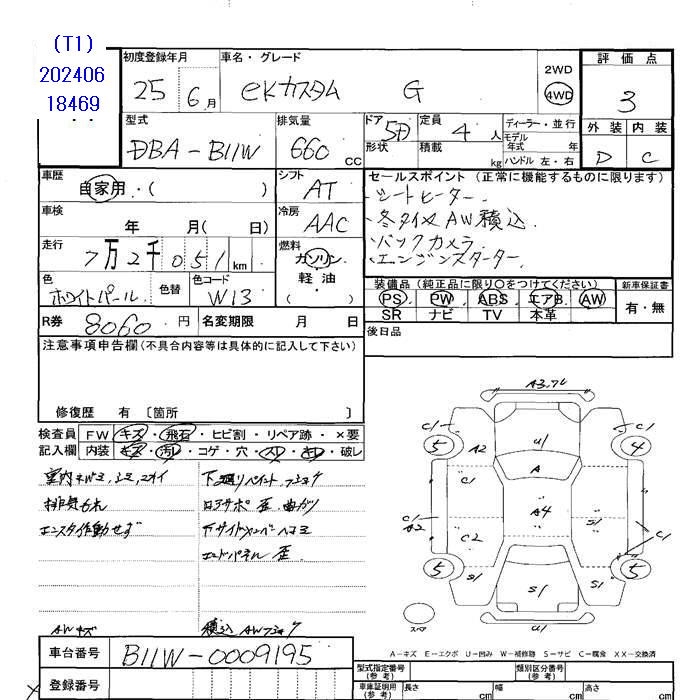 (T1)
202406
18469
初度登録年月
25 6月
車名・グレード
eKカスタム G
2WD
4WD
評価点
3
外装 内装
D C
型式
DBA-B11W
排気量
660 CC
ドア 5D
形状
定員 4人
積載 kg
ディーラー・並行
モデル年式 年
ハンドル 左・右
車歴
自家用・( )
シフト
AT
セールスポイント (正常に機能するものに限ります)
・シートヒーター
・冬タイヤAW積込
・バックカメラ
・エンジンスターター
車検
年 月( 日)
冷房
AAC
走行
7万2千051km
燃料
ガソリン
軽油
( )
色
ホワイトパール
色替
色コード
W13
装備品 (純正品に限り○をつけてください)
新車保証書
PS PW ABS エアB AW
SR ナビ TV 本革
有・無
R券 8060円
名変期限 月 日
後日品
注意事項申告欄(不具合内容等は具体的に記入して下さい)
修復歴 有 〔箇所 〕
検査員記入欄
FW キズ・飛石・ヒビ割・リペア跡・×要
内装 キズ・汚レ・コゲ・穴・スレ・キレ・破レ
排気モレ
エンスタ作動せず
ロアサポ 歪 曲がり
下サイドメンバーヘコミ
エンドパネル 歪
AWキズ
A3,7L
U1
C1
C1
5
4
A2
C1
A
C1
A2
A4
C2
S1
C1
5
5
S1
S1
S1
U1
スペア
A-キズ E-エクボ U-凹み W-補修跡 S-サビ C-腐食 XX-交換済
車台番号
B11W-0009195
登録番号
型式指定番号(参考)
類別区分番号(参考)
車庫証明用(参考)
長さ cm
幅 cm
高さ cm